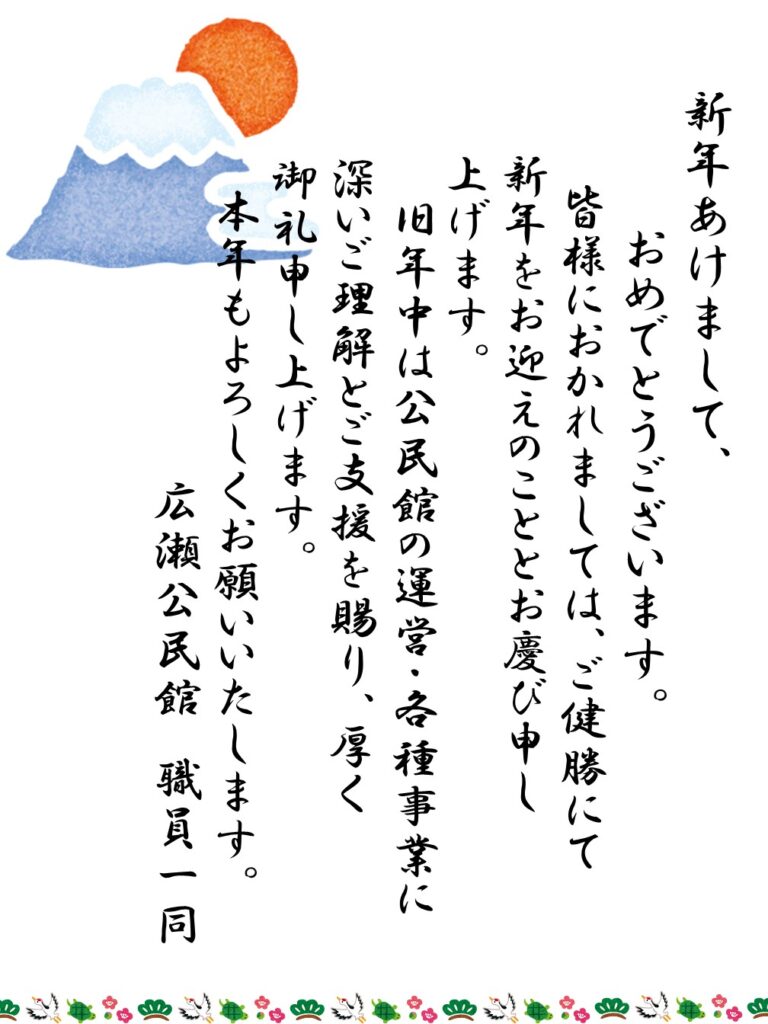 新年あけまして、
おめでとうございます。
皆様におかれましては、ご健勝にて
新年をお迎えのこととお慶び申し
上げます。
旧年中は公民館の運営・各種事業に
深いご理解とご支援を賜り、厚く
御礼申し上げます。
本年もよろしくお願いいたします。
広瀬公民館　職員一同